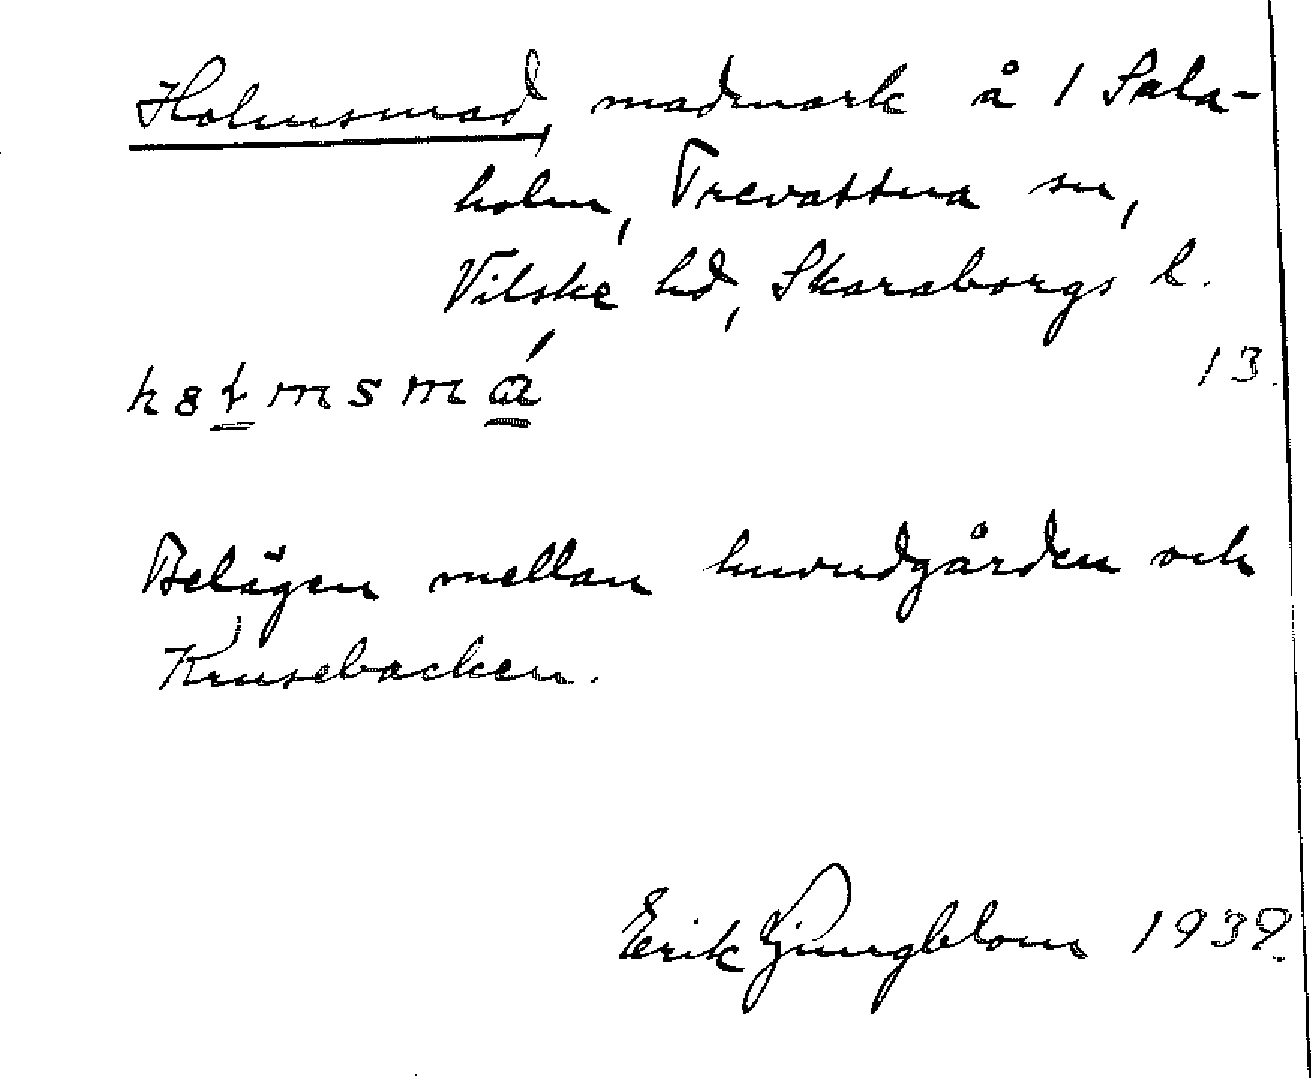 Holmsmad, madmark å 1 Sala-
holm, Trevattna sn,
Vilske hd, Skaraborgs l.
13.
h8ɫmsmá
Belägen mellan huvudgården och
Krusebacken.
Erik Ljungblom 1939.